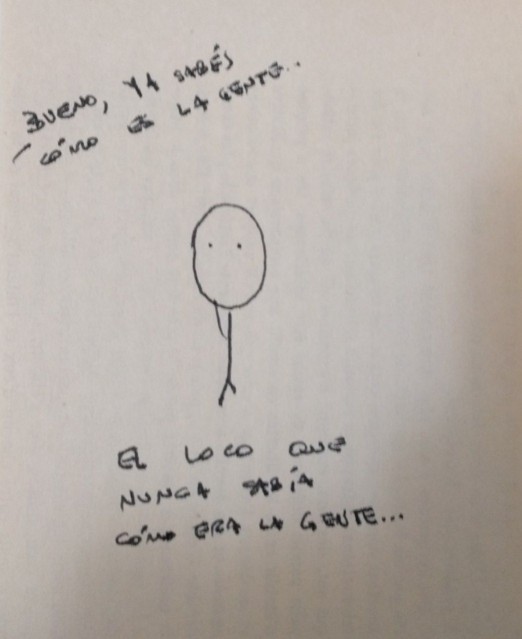 BUENO, YA SABÉS
CÓMO ES LA GENTE..
EL LOCO QUE
NUNCA SABÍA
CÓMO ERA LA GENTE...